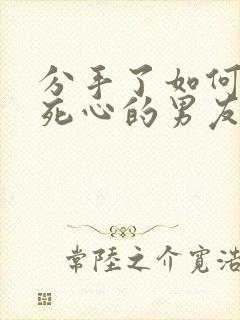 分手了如何
死心的男友
常陸之介寛浩